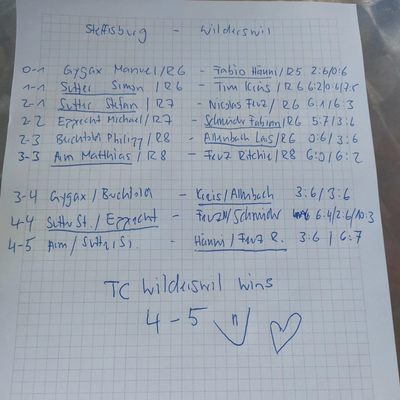 Steffisburg - Wilderswil
0-1 Gygax Manuel/R6 - Fabio Hänni/R5 2:6/0:6
1-1 Sutter Simon / R6 - Tim Kreis / R6 6:2/0:6/7:5
2-1 Sutter Stefan / R7 - Nicolas Feuz / R6 6:1/6:3
2-2 Epprecht Michael/R7 - Schneider Fabian/R6 5:7/3:6
2-3 Buchtold Philipp/R8 - Allenbach Lars/R6 0:6/3:6
3-3 Aim Matthias/R8 - Feuz Ritchie/R8 6:0/6:2
3-4 Gygax / Buchtold - Kreis/Allenbach 3:6/3:6
4-4 Sutter St. / Epprecht - Feuz N/Schneider 6:4/2:6/10:3
4-5 Aim / Sutter Si. - Hänni / Feuz R. 3:6 / 6:7
TC Wilderswil wins
4-5